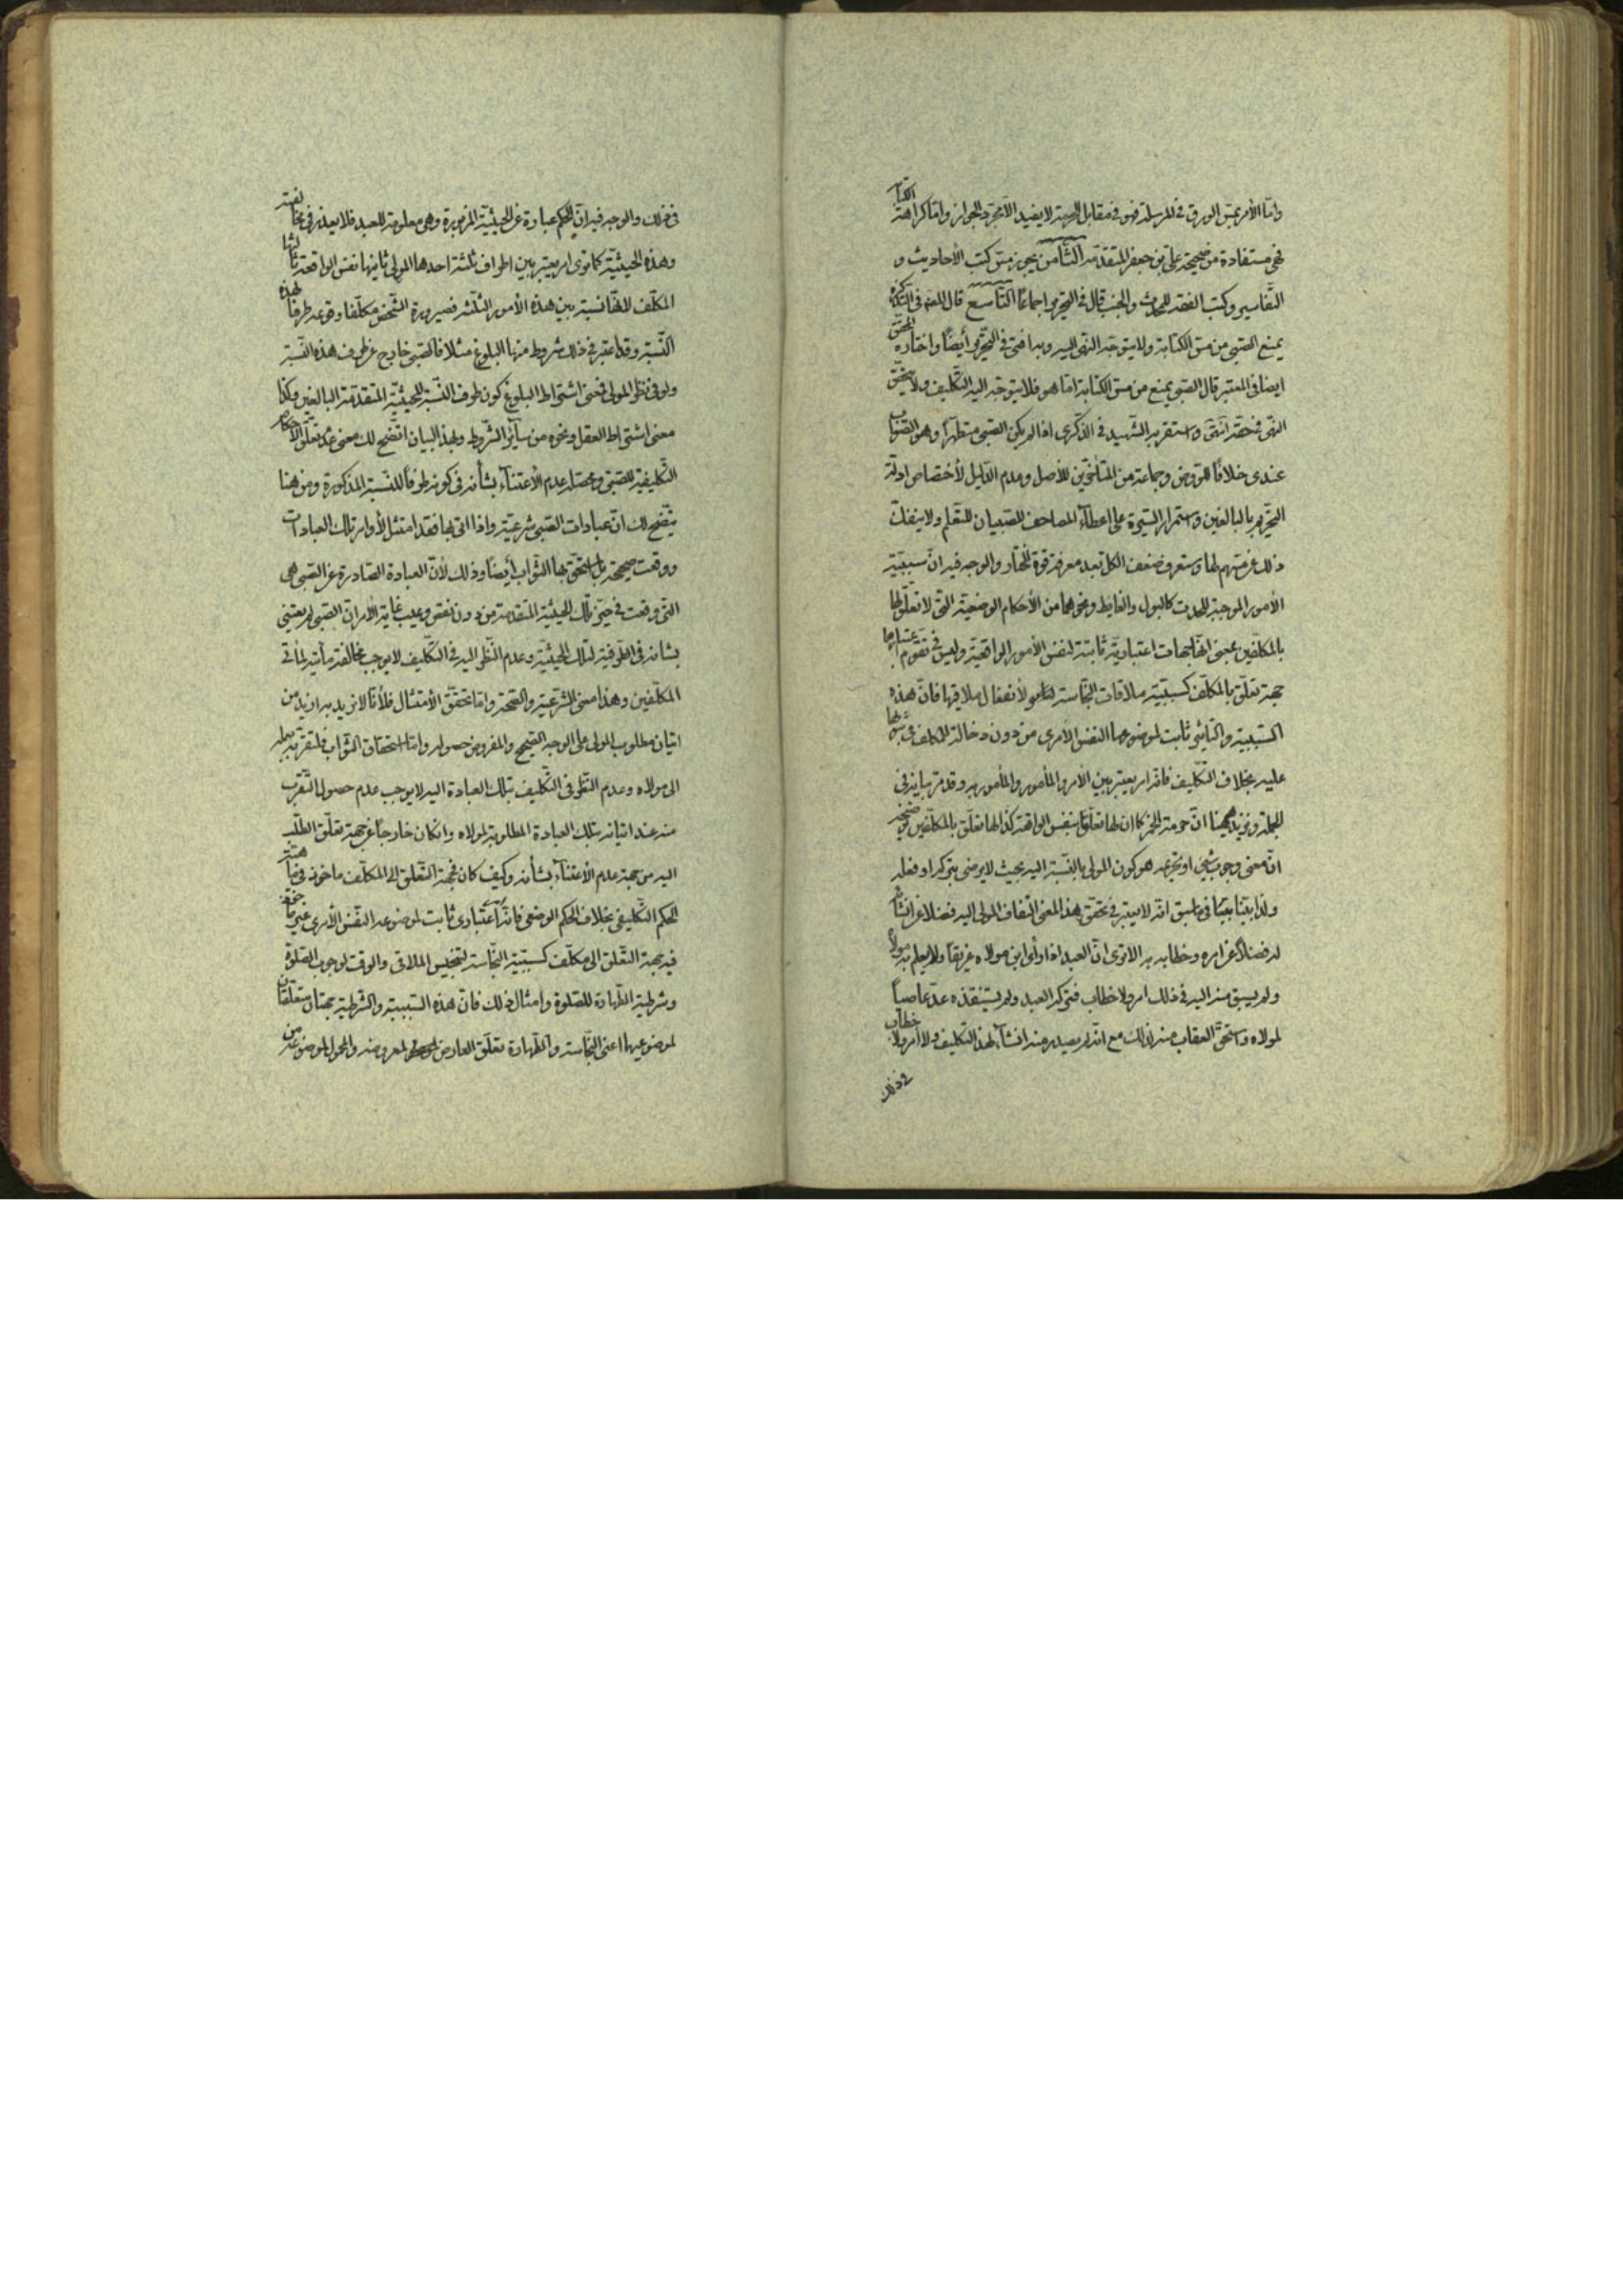 وامّا الأمر بمسّ الورق في المرسلة فهو في مقابل لا يفيد الّا مجرّد الجواز وامّا كراهة الكتابة
فهي مستفادة من صحيحة علي بن جعفر المتقدّمة الثّامن يجوز مسّ كتب الأحاديث و
التّفاسير وكتب الفقه للمحدث والجنب قال في التحرير اجماعًا التّاسع قال العلامة في التّذكرة
يمنع الصّبي من مسّ الكتابة ولا يتوجّه النّهي اليه وبه افتى في التّحرير أيضًا واختاره المحقّق
ايضا في المعتبر قال الصّبي يمنع من مسّ الكتابة امّا هو فلا يتوجّه اليه التّكليف ولا يتحقّق
النّهى في حقّه انتهى واستقربه الشّهيد في الذّكرى اذا لم يكن الصّبي متطهّرًا وهو الصّواب
عندى خلافًا للرّوض وجماعة من المتأخّرين للأصل وعدم الدّليل لأختصاص ادلّة
التّحريم بالبالغين واستمرار السّيرة على اعطاء المصاحف للصّبيان للتّعلّم ولا ينفكّ
ذلك عن مسّهم لها وستعرف ضعف الكلّ بعد معرفة قوّة المختار والوجه فيه انّ سببيّة
الأمور الموجبة للحدث كالبول والغايط ونحوهما من الأحكام الوضعيّة الّتى لا تعلّق لها
بالمكلّفين بمعنى انّها جهات اعتباريّة ثابتة لنفس الأمور الواقعيّة وليس في تقوّم اعتبارها
جهة تعلّق بالمكلّف كسببيّة ملاقات النّجاسة لأنفعال ملاقيها فانّ هذه
السّببيّة والتّأثير ثابت لموضوعها النّفس الأمرى من دون دخالة للمكلّف في ترتّبها
عليه بخلاف التّكليف فانّه امر يعتبر بين الأمر والمأمور والمأمور به وقد مرّ بيانه في
الجملة ونزيد هيهنا انّ حرمة الخمر كما انّ لها تعلّقًا بنفس الواقعة كذا لها تعلّق بالمكلّفين توضيحه
انّ معنى وجوب شيئ او تحريمه هو كون المولى بالنّسبة اليه بحيث لا يرضى بتركه او فعله
ولذا بيّنا فيما سبق انّه لا يعتبر في تحقّق هذا المعنى التفات المولى اليه فضلا عن انشائه
له فضلًا عن امره وخطابه به الا ترى انّ العبد اذا رأى ابن مولاه غريقًا ولا يعلم به مولاه
ولم يسبق منه اليه في ذلك امر ولا خطاب فتركه العبد ولم يستنقذه عدّ عاصيًا
لمولاه واستحقّ العقاب منه لذلك مع انّه لم يصدر منه انشاء لهذا التّكليف ولا امر ولا خطاب
في ذلك
في ذلك والوجه فيه انّ الحكم عبارة عن الحيثيّة المزبورة وهى معلومة للعبد فلا يعذر في مخالفته
وهذه الحيثيّة كما ترى امر يعتبر بين اطراف ثلثة احدها المولى ثانيها نفس الواقعة ثالثها
المكلّف لانّها نسبة بين هذه الأمور الثّلثة فصيرورة الشّخص مكلّفا وقوعه طرفًا لهذه
النّسبة وقد اعتبر في ذلك شروط منها البلوغ مثلا فالصّبي خارج عن طرف هذه النّسبة
ولو في نظر المولى فمعنى اشتراط البلوغ كون طرف النّسبة للحيثيّة المتقدّمة البالغين وكذا
معنى اشتراط العقل ونحوه من سائر الشّروط وبهذا البيان اتّضح لك معنى عدم تعلّق الأحكام
التّكليفيّة للصّبي ومحصّله عدم الأعتناء بشأنه في كونه طرفًا للنّسبة المذكورة ومن هنا
يتّضح لك انّ عبادات الصّبي شرعيّة واذا اتى بها فقد امتثل لأوامر تلك العبادات
ووقعت صحيحة بل استحقّ بها الثّواب أيضًا وذلك لأنّ العبادة الصّادرة عن الصّبي هى
الّتى وقعت في حيّز تلك الحيثيّة المتقدّمة من دون نقص وعيب غاية الأمر انّ الصّبي لم يعتنى
بشأنه في الطّرفيّة لتلك الحيثيّة وعدم النّظر اليه في التّكليف لا يوجب مخالفة مأتيّه لمأتى
المكلّفين وهذا معنى الشّرعيّة والصّحّة وامّا تحقّق الأمتثال فلأنّا لا نريد به ازيد من
اتيان مطلوب المولى على الوجه الصّحيح والمفروض حصوله وامّا استحقاق الثّواب فلتقرّبه بعمله
الى مولاه وعدم النّظر في التّكليف بتلك العبادة اليه لا يوجب عدم حصول التّقرّب
منه عند اتيانه بتلك العبادة المطلوبة لمولاه وان كان خارجًا عن جهة تعلّق الطّلب
اليه من جهة عدم الأعتناء بشأنه وكيف كان فجهة التّعلّق الى المكلّف مأخوذ في ماهيّة
الحكم التّكليفي بخلاف الحكم الوضعي فانّه اعتبارى ثابت لموضوعه النّفس الأمرى غير مأخوذة
فيه جهة التّعلّق الى مكلّف كسببيّة النّجاسة لتنجيس الملاقى والوقت لوجوب الصّلوة
وشرطيّة الطّهارة للصّلوة وامثال ذلك فانّ هذه السّببيّة والشّرطيّة جهتان متعلّقتان
لموضوعيهما اعنى النّجاسة والطّهارة تعلّق العارض لمعروضه والمحمول لموضوعه من